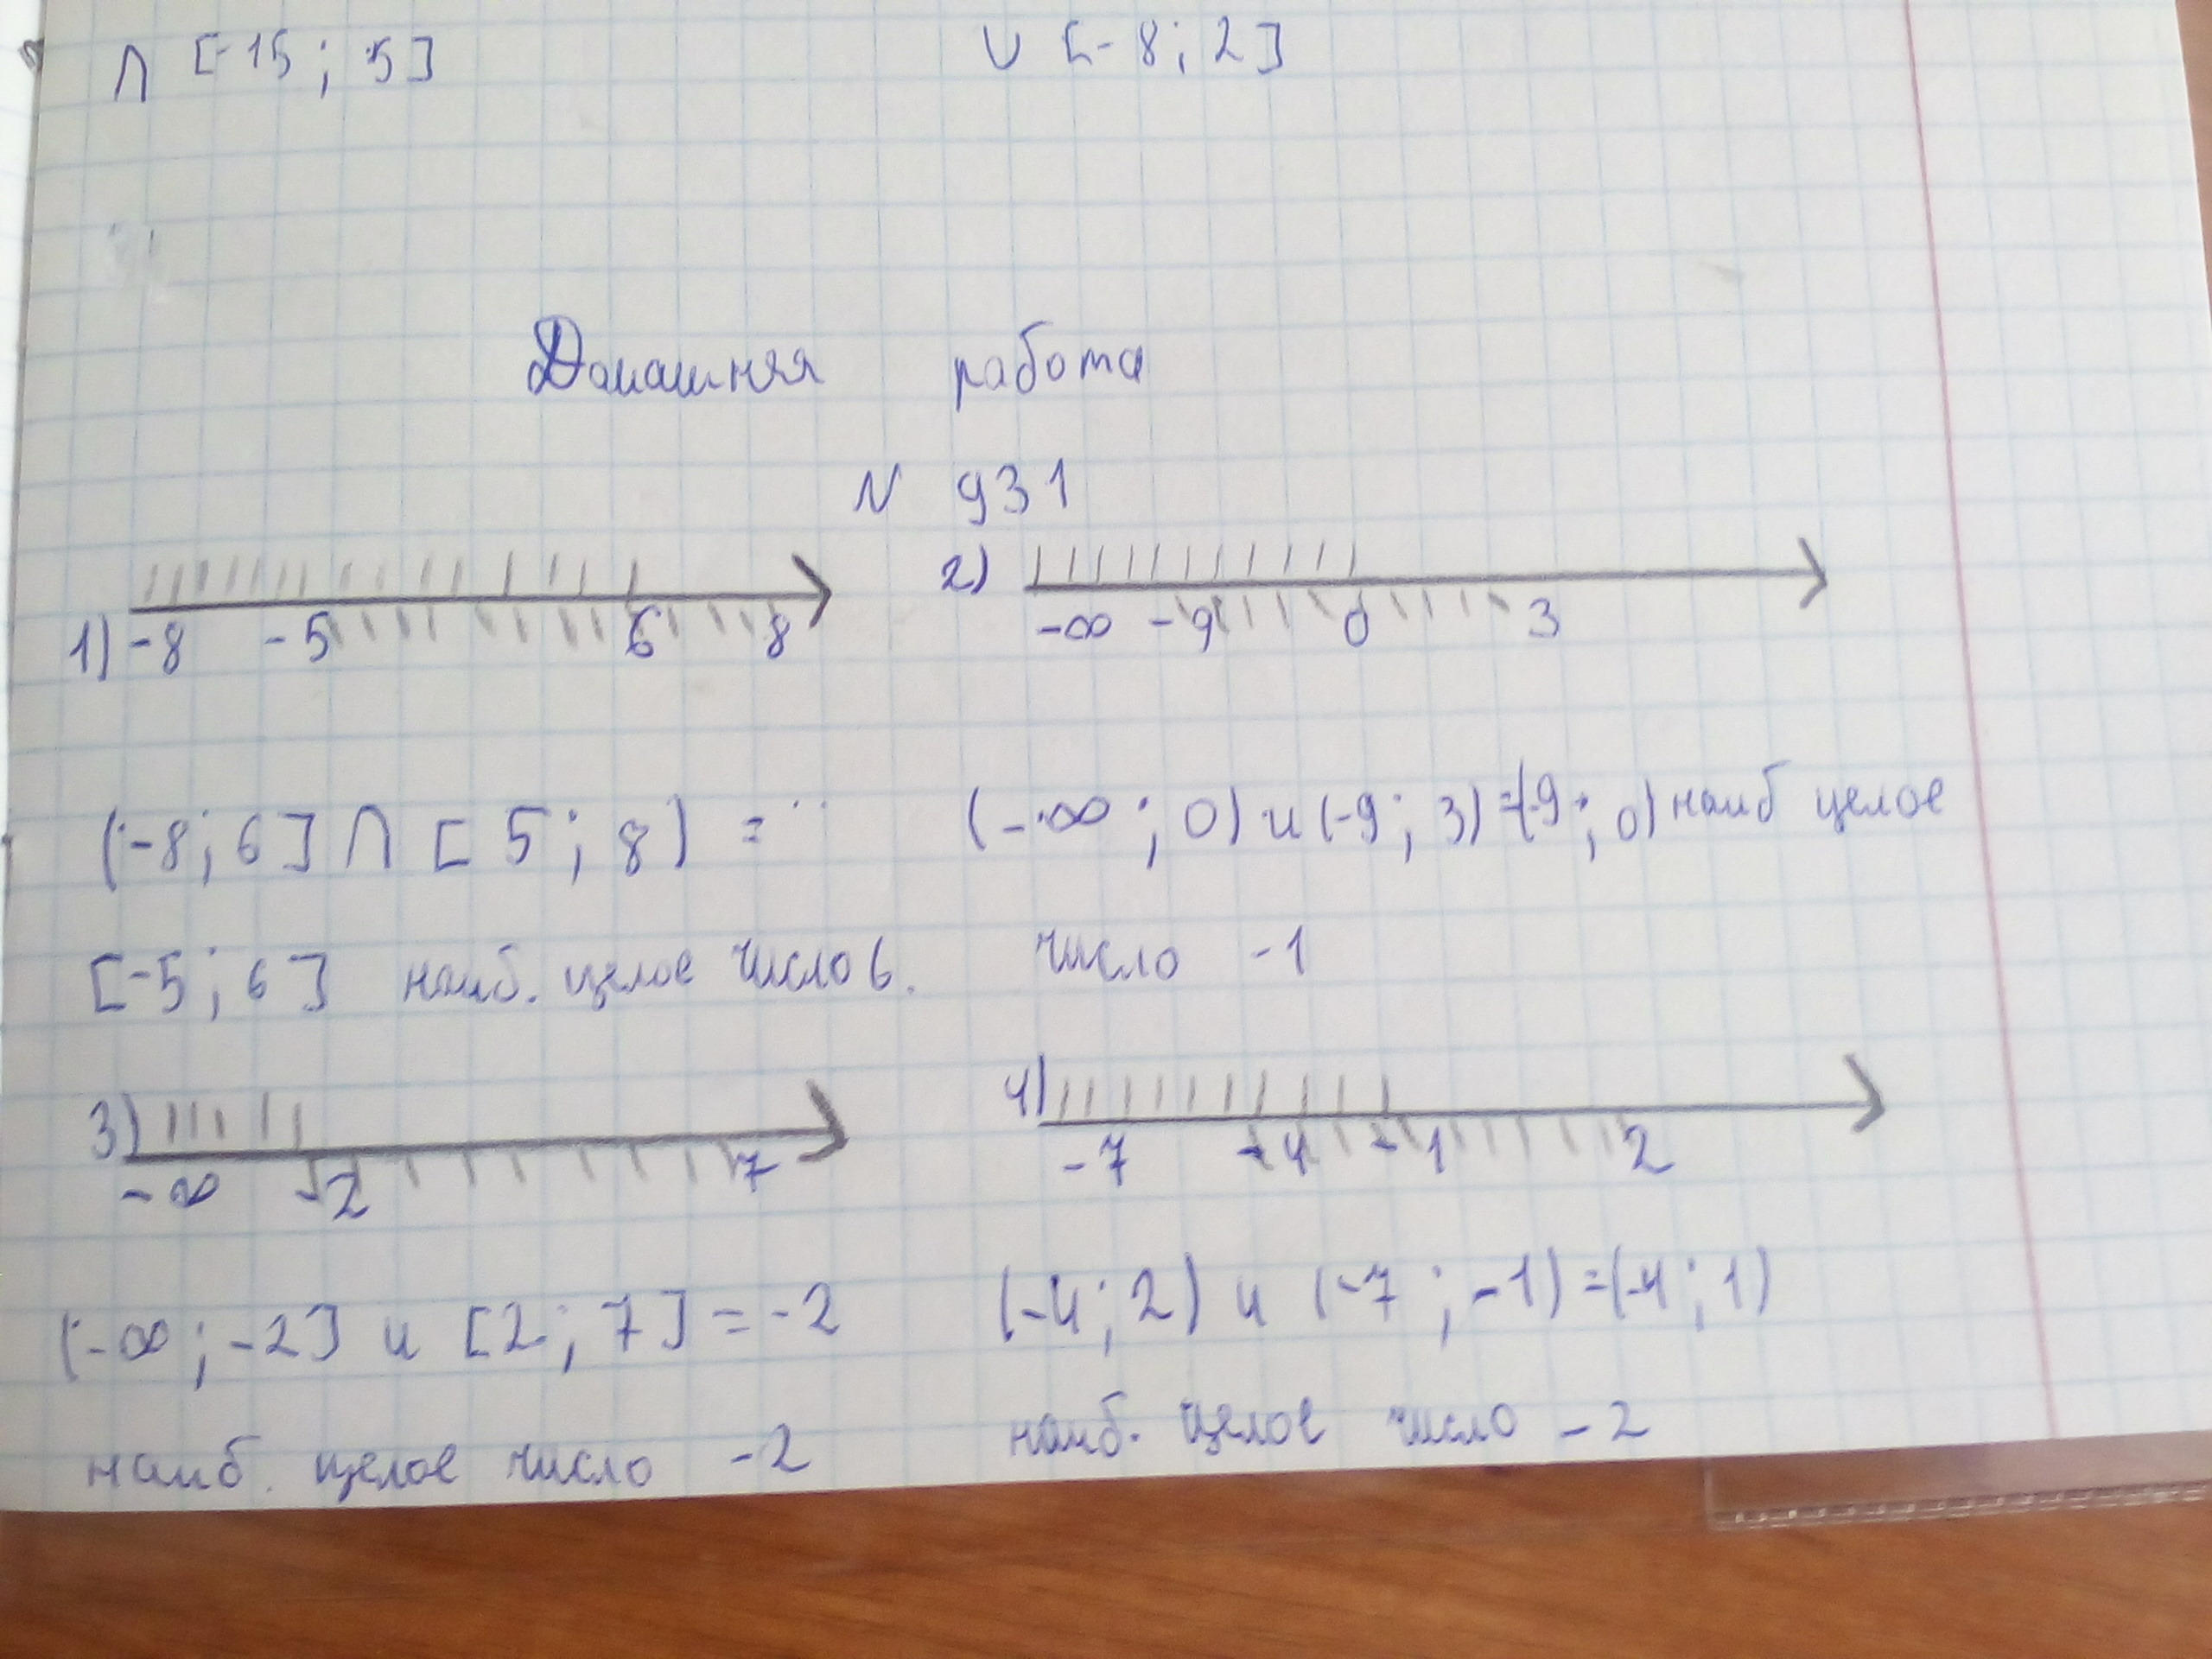 ∩ [-15; 5]
∪ [-8; 2]
Домашняя работа
N 931
1) -8 -5 6 8
2) -∞ -9 0 3
(-8; 6] ∩ [5; 8) =
[-5; 6] наиб. целое число 6.
(-∞; 0) и (-9; 3) = (-9; 0) наиб целое
число -1
3) -∞ -2 7
4) -7 -4 -1 2
(-∞; -2] и [2; 7] = -2
наиб. целое число -2
(-4; 2) и (-7; -1) = (-4; 1)
наиб. целое число -2